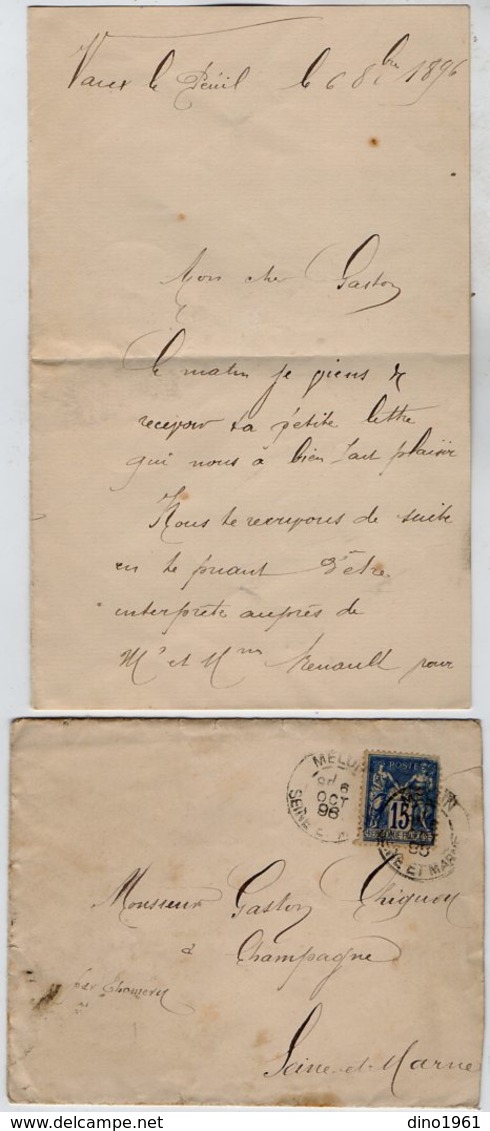 Vaux le Pénil le 6 8bre 1896
Mon cher Gaston
Ce matin je viens de
recevoir ta petite lettre
qui nous à bien fait plaisir
Nous te recrivons de suite
en te priant d'être
interprète auprès de
Mr et Mme Renault pour
MELUN
6
OCT
96
SEINE ET MARNE
POSTES
15
Monsieur Gaston Thiguoy
à
Champagne
par Thomery
Seine-et-Marne
dino1961